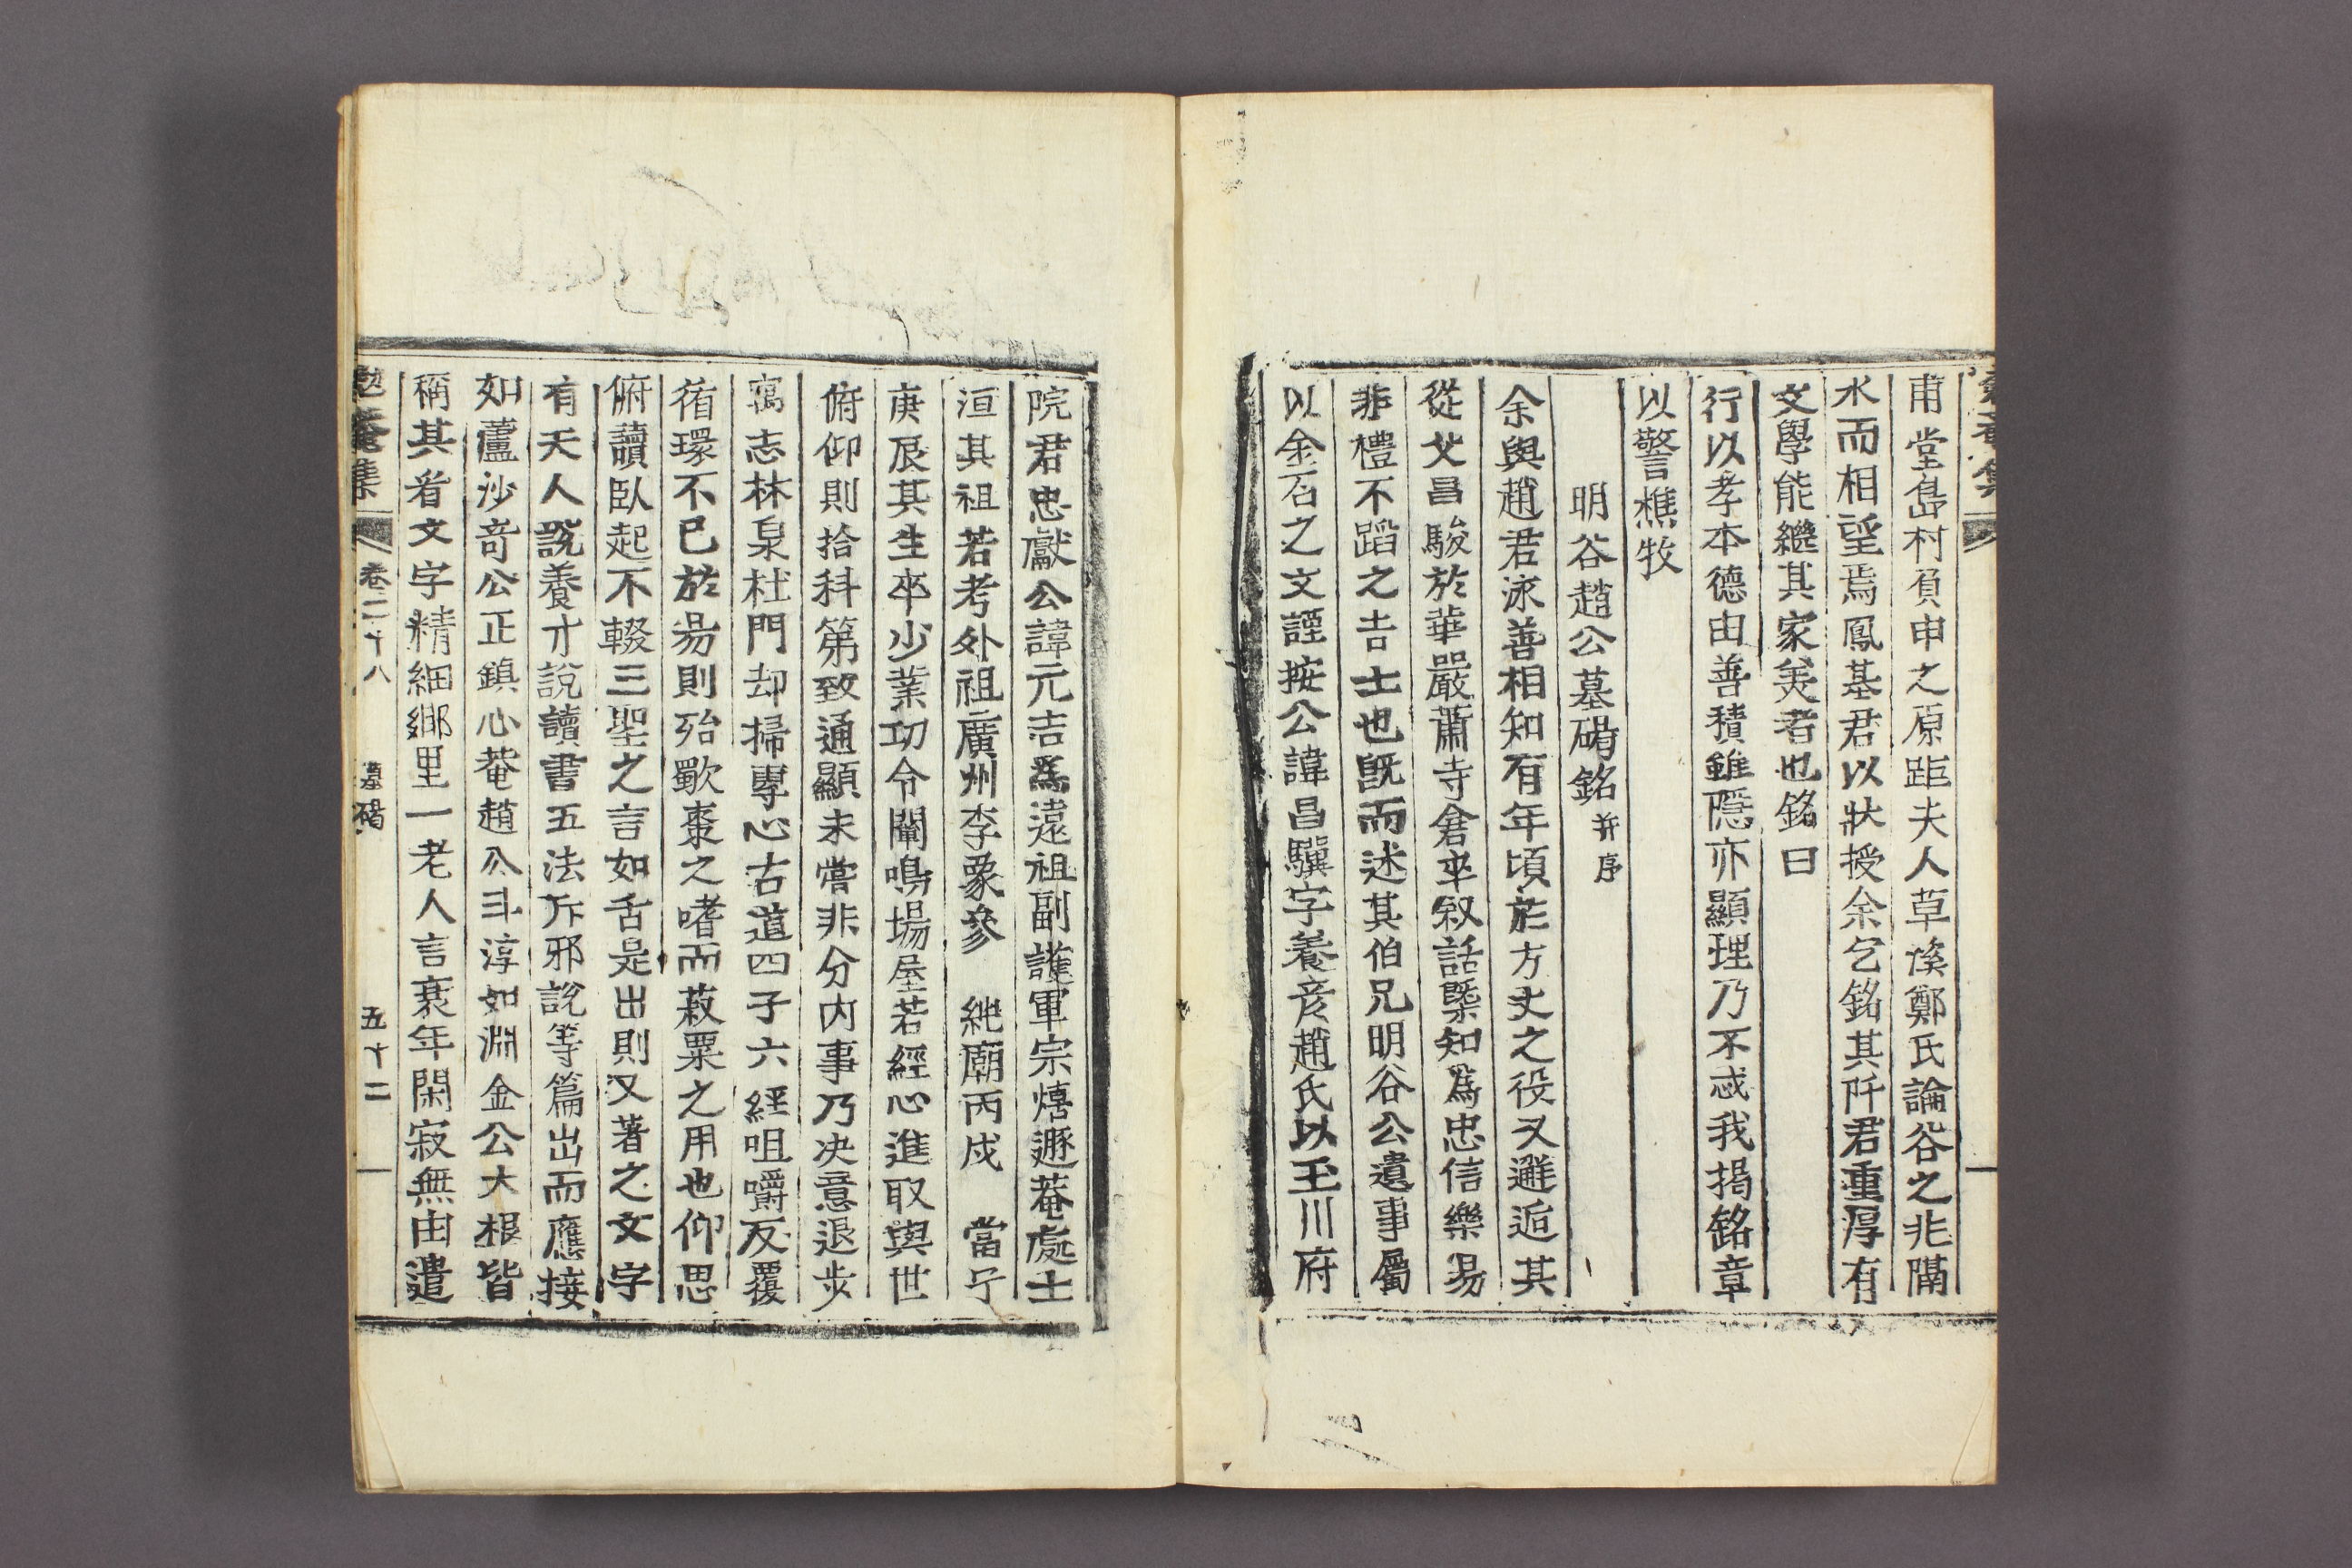 甫堂島村負申之原距夫人草溪鄭氏論谷之兆隔
水而相望焉鳳基君以狀授余乞銘其阡君重厚有
文學能繼其家美者也銘曰
行以孝本德由善積雖隱亦顯理乃不忒我揭銘章
以警樵牧
明谷趙公墓碣銘 并序
余與趙君泳善相知有年頃於方丈之役又邂逅其
從父昌駿於華嚴蕭寺倉卒叙話槩知爲忠信樂易
非禮不蹈之吉士也旣而述其伯兄明谷公遺事屬
以金石之文謹按公諱昌驥字養彦趙氏以玉川府
院君忠獻公諱元吉爲遠祖副護軍宗熺遯菴處士
洹其祖若考外祖廣州李象參 純廟丙戌 當宁
庚辰其生卒少業功令闡鳴場屋若經心進取與世
俯仰則拾科第致通顯未嘗非分内事乃决意退步
寓志林泉杜門却掃專心古道四子六經咀嚼反覆
循環不已於易則殆歜棗之嗜而菽粟之用也仰思
俯讀臥起不輟三聖之言如舌是出則又著之文字
有天人說養才說讀書五法斥邪說等篇出而應接
如蘆沙奇公正鎭心菴趙公斗淳如淵金公大根皆
稱其者文字精細鄕里一老人言衰年閑寂無由遣
勉菴集 卷二十八 墓碣 五十二